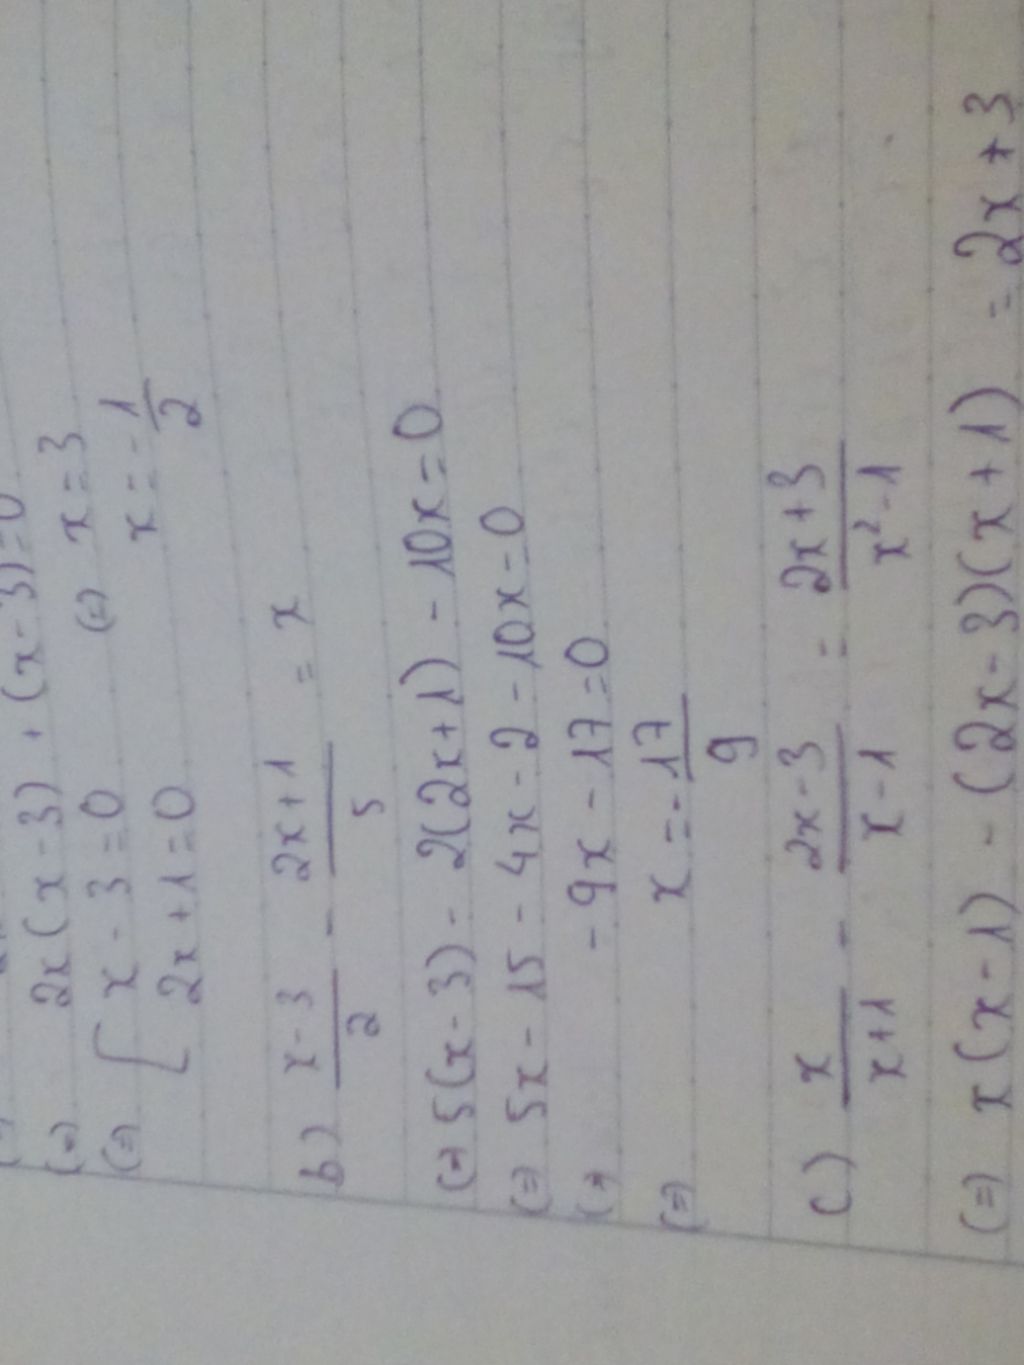 (x-3) = 0
(=) 2x(x-3) + (x-3) = 0
(=) [ x - 3 = 0 (=) x = 3
2x + 1 = 0 x = -1/2
b) (x-3)/2 - (2x+1)/5 = x
(=) 5(x-3) - 2(2x+1) - 10x = 0
(=) 5x - 15 - 4x - 2 - 10x = 0
(=) -9x - 17 = 0
(=) x = -17/9
c) x/(x+1) - (2x-3)/(x-1) = (2x+3)/(x²-1)
(=) x(x-1) - (2x-3)(x+1) = 2x+3